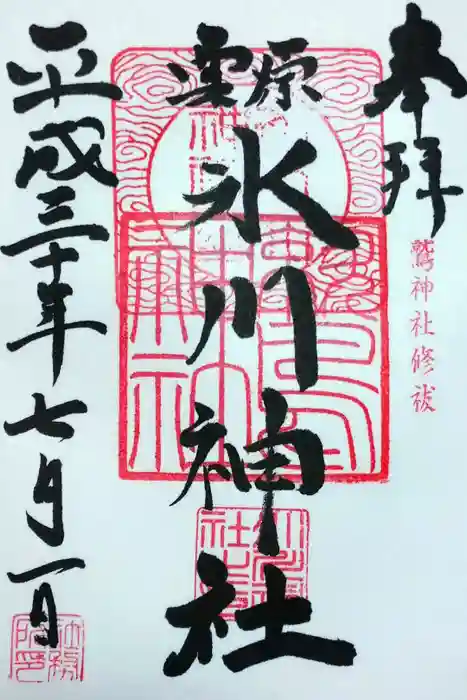 奉拝
鷲神社修祓
原雲
氷川神社
平成三十年七月一日